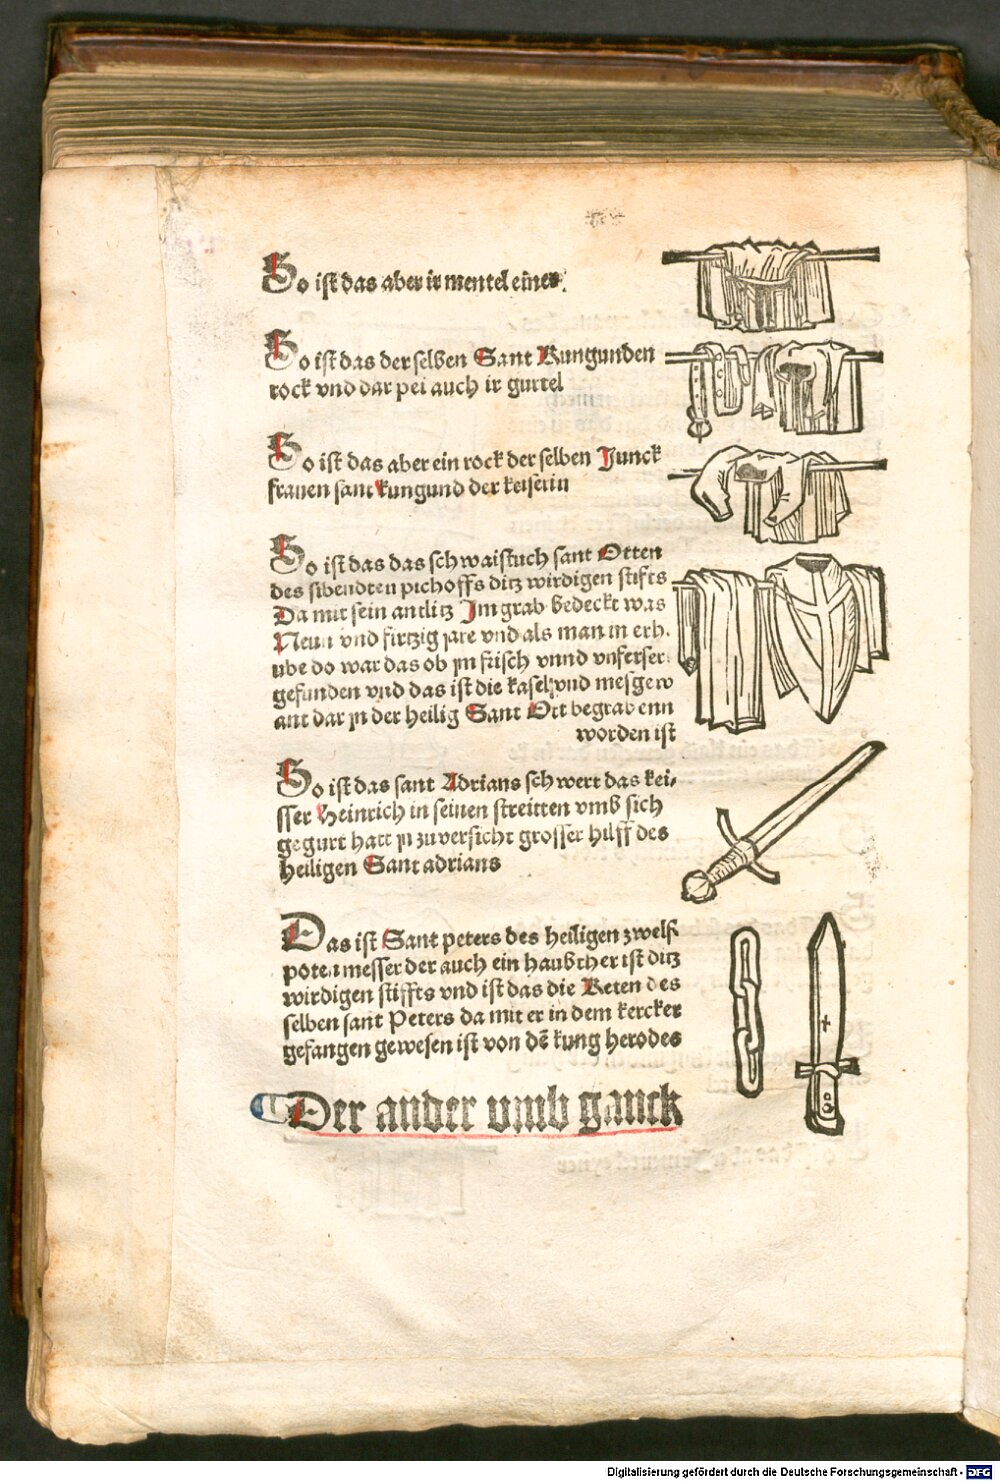 So ist das aber ir mentel einer.
So ist das der selben Sant Kungunden
rock vnd dar pei auch ir gurtel
So ist das aber ein rock der selben Junck
frauen sant kungund der keiserin
So ist das das schwaistuch sant Otten
des sibendten pichoffs ditz wirdigen stifts
Da mit sein antlitz Jm grab bedeckt was
Neun vnd firtzig jare vnd als man in erh.
ube do war das ob jn frisch vnnd vnferser.
gefunden vnd das ist die kasel vnd mesgew
ant dar jn der heilig Sant Ott begrabenn
worden ist
So ist das sant Adrians schwert das kei-
sser Heinrich in seinen streitten vmb sich
gegurt hatt jn zuversicht grosser hilff des
heiligen Sant adrians
Das ist Sant peters des heiligen zwelf
poten messer der auch ein haubther ist ditz
wirdigen stiffts vnd ist das die Keten des
selben sant Peters da mit er in dem kercker
gefangen gewesen ist von dē kung herodes
Der ander vmb ganck
Digitalisierung gefördert durch die Deutsche Forschungsgemeinschaft - DFG